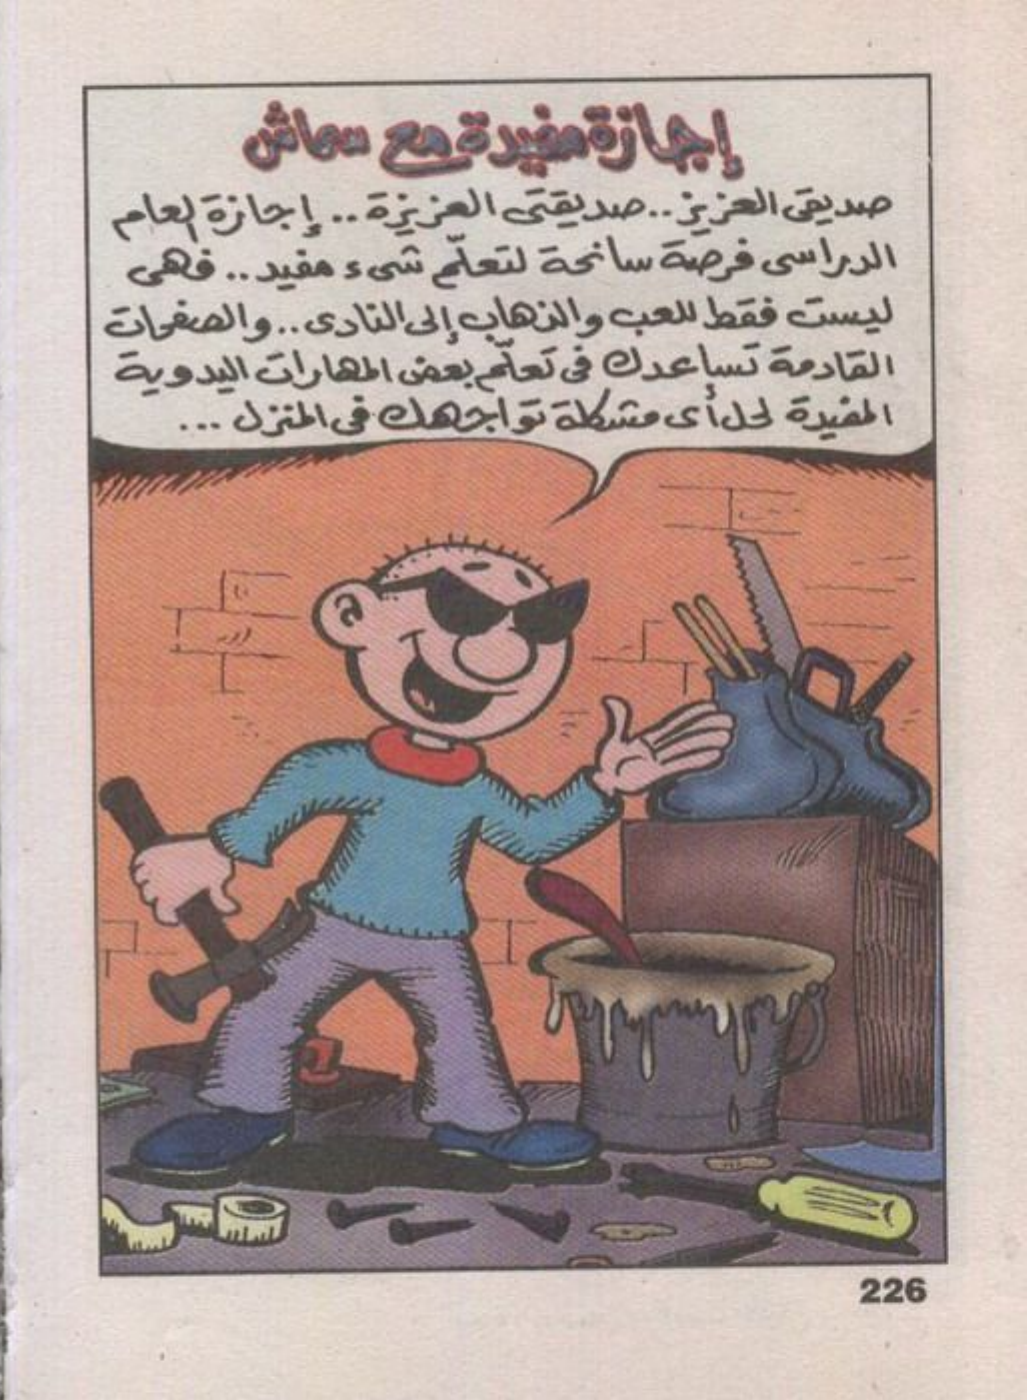 إجازة مفيدة مع سماش
صديقى العزيز .. صديقتى العزيزة .. إجازة العام
الدراسى فرصة سانحة لتعلّم شىء مفيد .. فهى
ليست فقط للعب والذهاب إلى النادى .. والصفحات
القادمة تساعدك فى تعلّم بعض المهارات اليدوية
المفيدة لحل أى مشكلة تواجهك فى المنزل ...
226